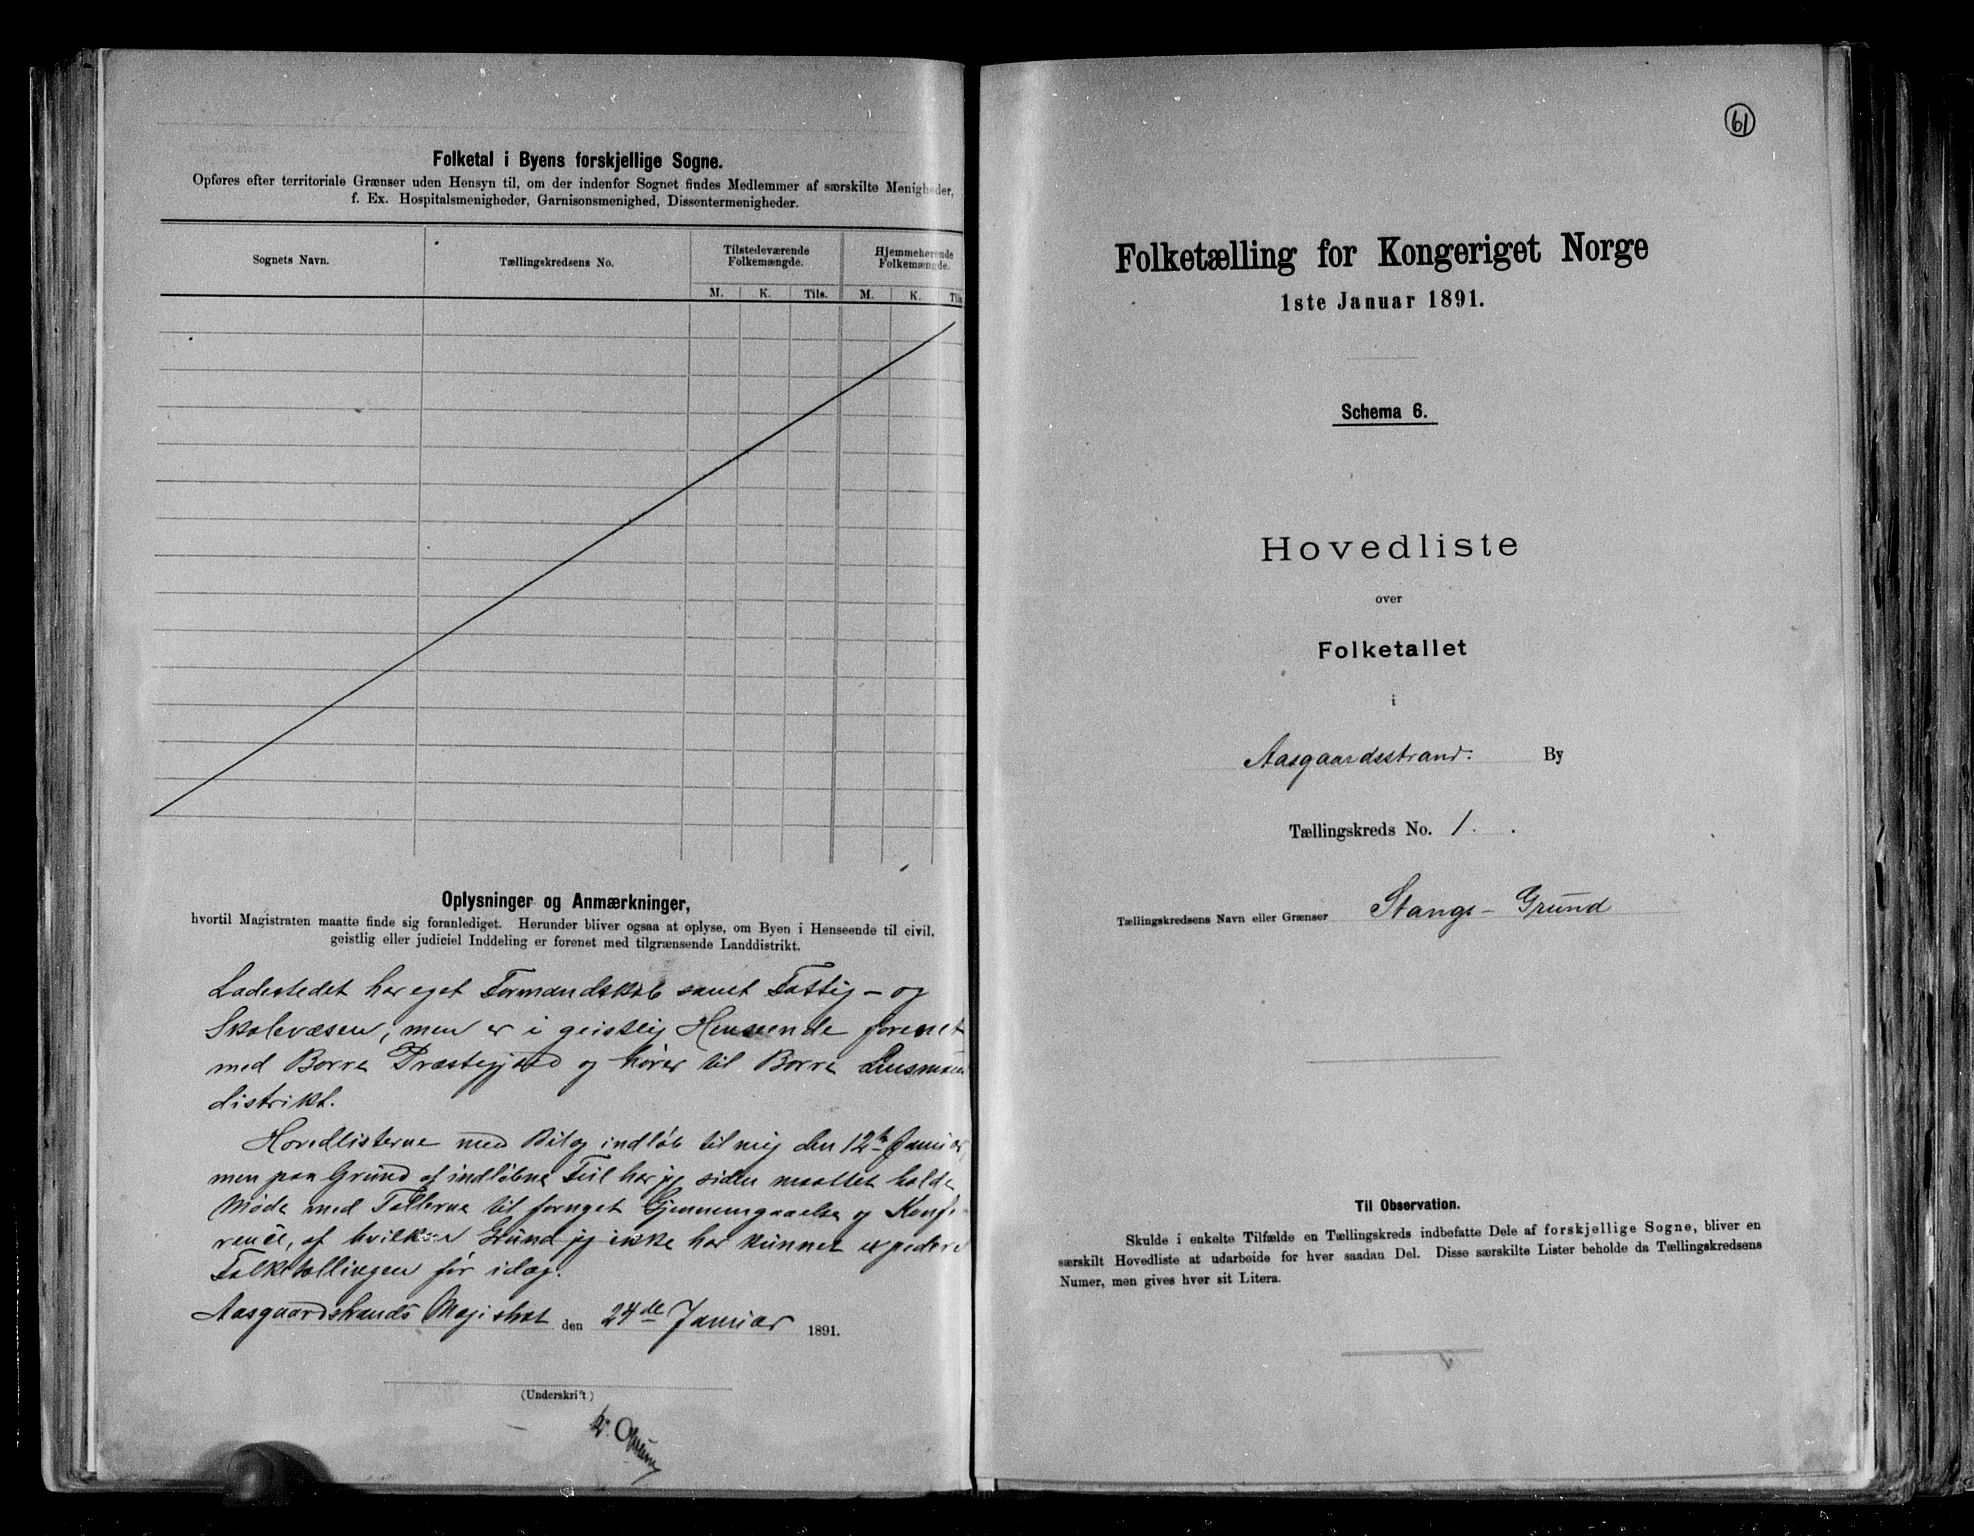 Folketal i Byens forskjellige Sogne.
Opføres efter territoriale Grænser uden Hensyn til, om der indenfor Sognet findes Medlemmer af særskilte Menigheder,
f. Ex. Hospitalsmenigheder, Garnisonsmenighed, Dissentermenigheder.
Sognets Navn.
Tællingskredsens No.
Tilstedeværende
Folkemængde.
Hjemmehørende
Folkemængde.
M. K. Tils. M. K. Tils
Oplysninger og Anmærkninger,
hvortil Magistraten maatte finde sig foranlediget. Herunder bliver ogsaa at oplyse, om Byen i Henseende til civil,
geistlig eller judiciel Inddeling er forenet med tilgrænsende Landdistrikt.
Ladestedet har eget Formandskab samt Fattig- og
Skolevæsen, men er i geistlig Henseende forenet
med Borre Præstegjeld og hører til Borre Lensmands
distrikt.
Hovedlisterne med Bilag indløb til mig den 12te Januar,
men paa Grund af indløbne Feil har jeg siden maattet holde
Møde med Tællerne til fornyet Gjennemgaaelse og Konfe-
rence, af hvilken Grund jeg ikke har kunnet expedere
Folketællingen før idag.
Aasgaardstrands Magistrat den 24de Januar 1891.
(Underskrift)
61
Folketælling for Kongeriget Norge
1ste Januar 1891.
Schema 6.
Hovedliste
over
Folketallet
i
Aasgaardsstrand. By
Tællingskreds No. 1.
Tællingskredsens Navn eller Grænser Stangs-Grund
Til Observation.
Skulde i enkelte Tilfælde en Tællingskreds indbefatte Dele af forskjellige Sogne, bliver en
særskilt Hovedliste at udarbeide for hver saadan Del. Disse særskilte Lister beholde da Tællingskredsens
Numer, men gives hver sit Litera.